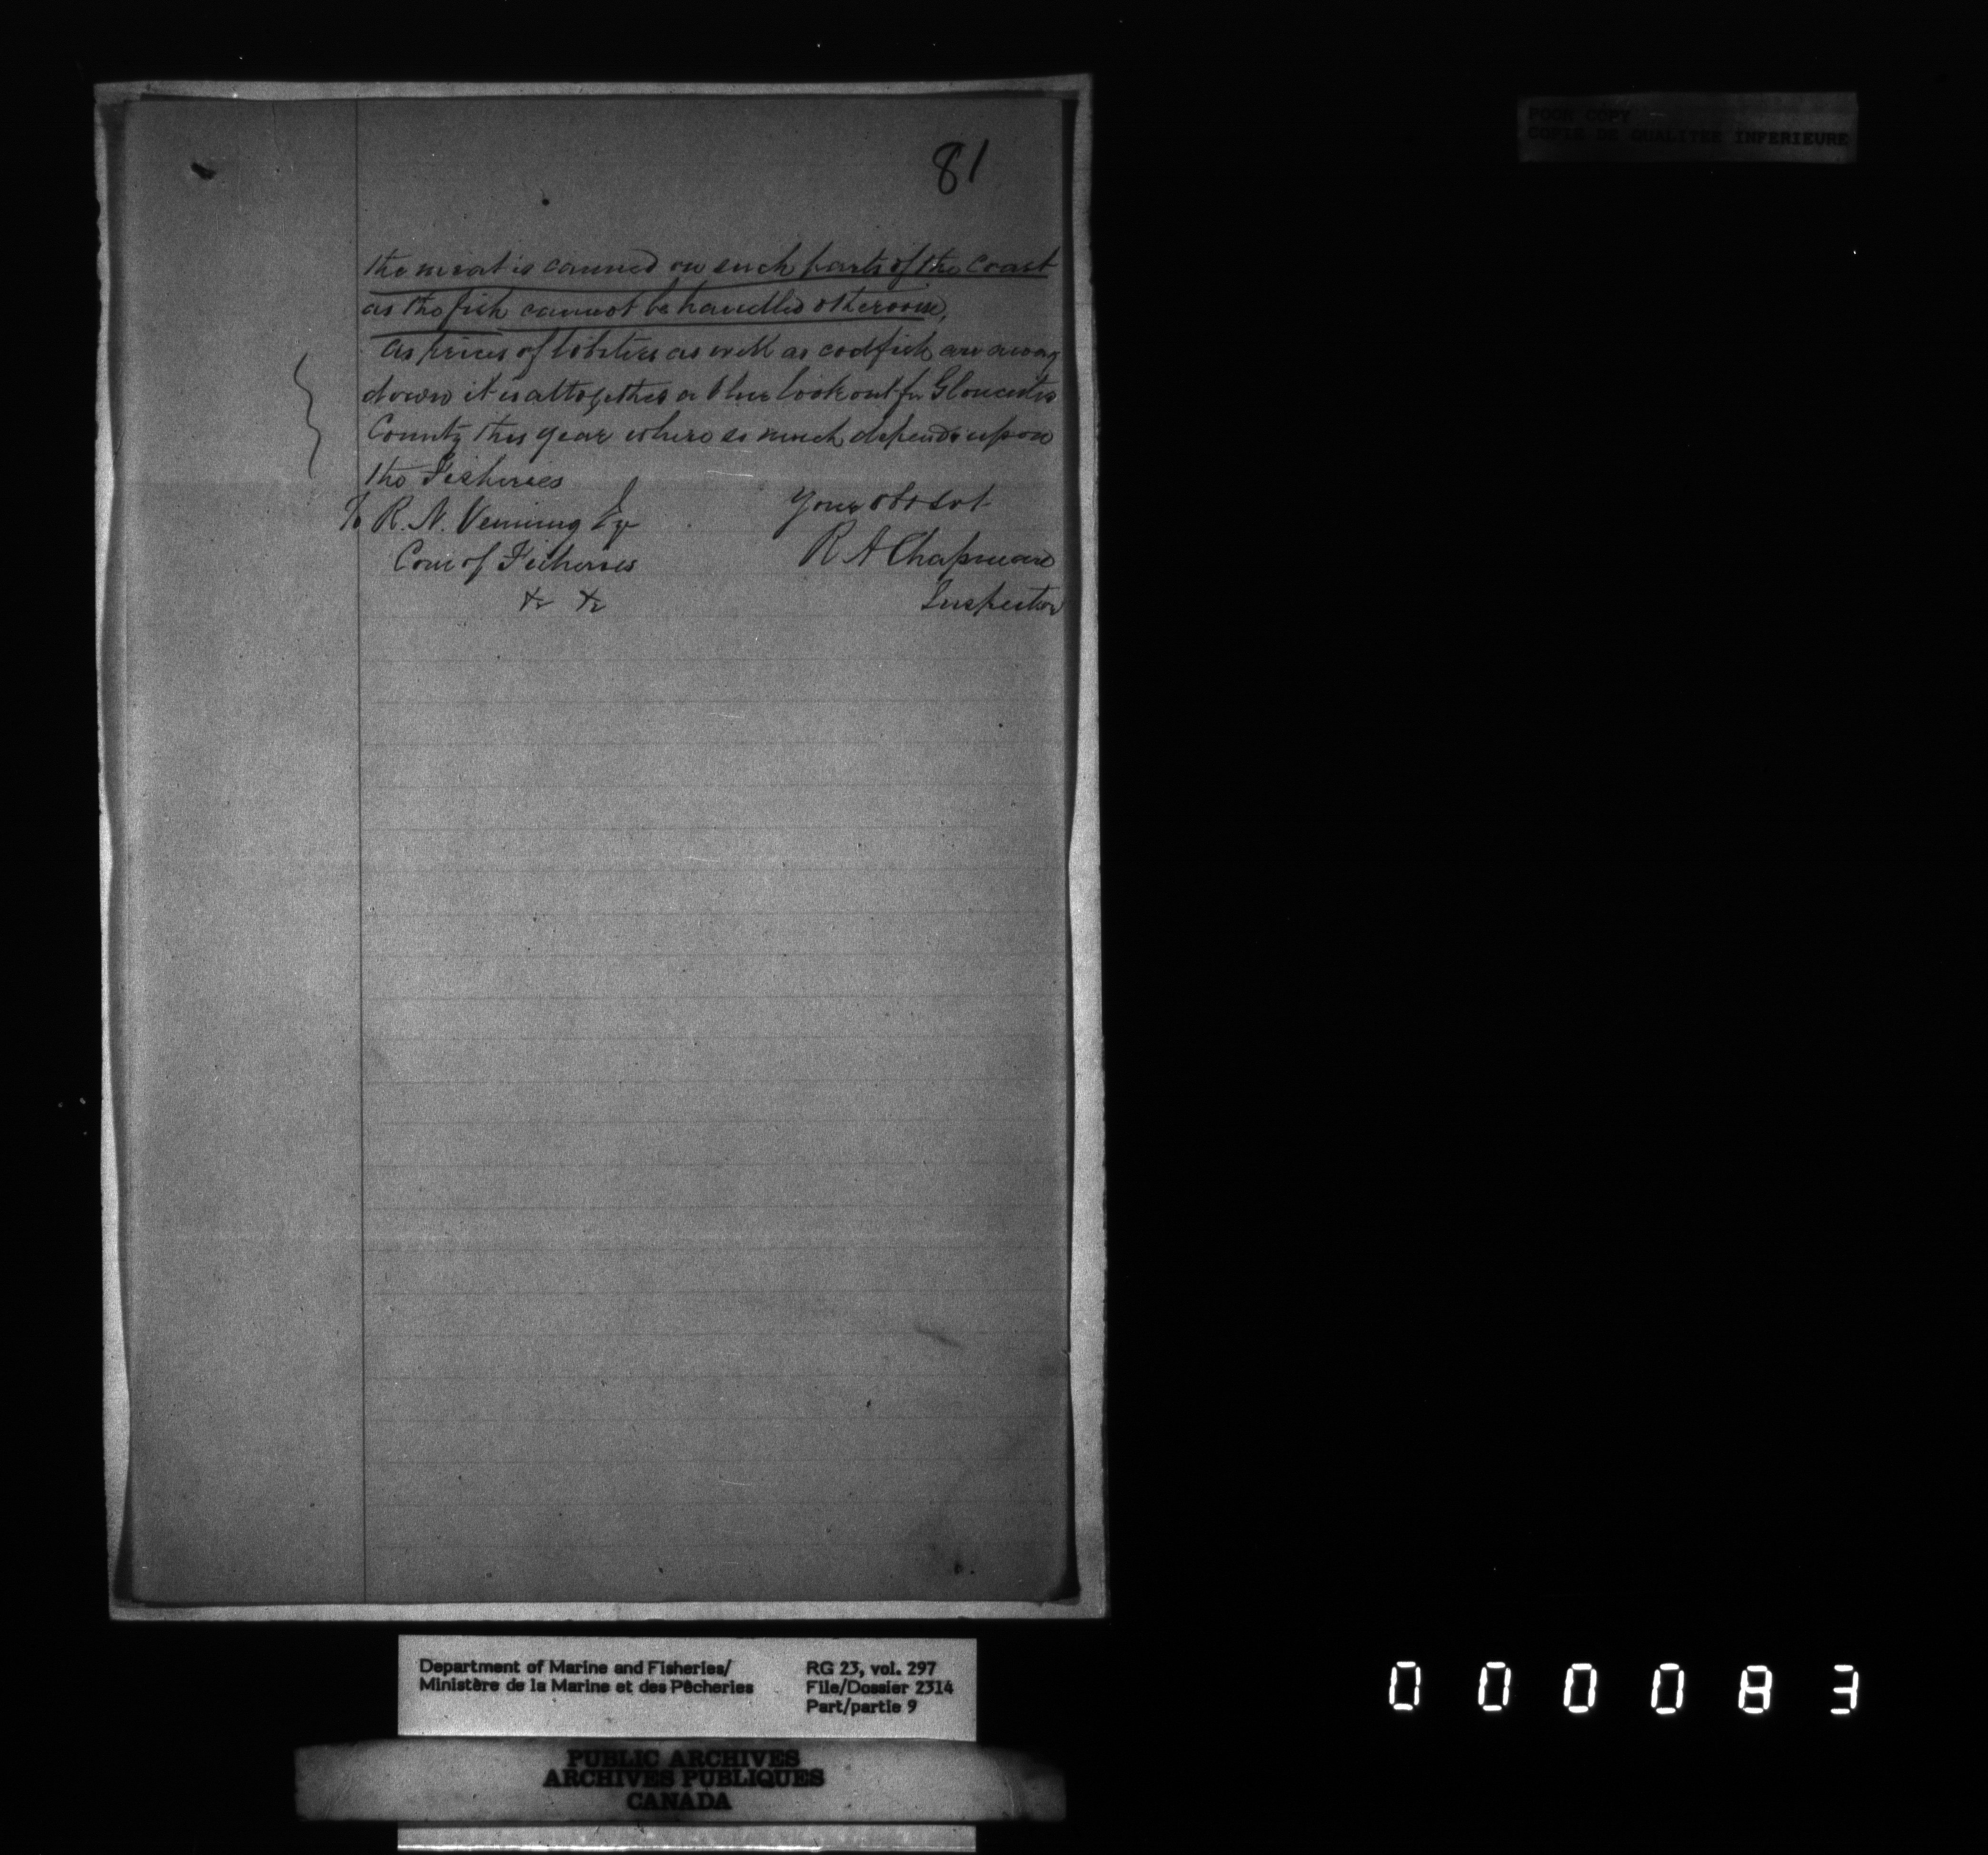 81
the meat is canned on such parts of the Coast
as the fish cannot be handled otherwise,
As prices of lobsters as well as codfish are away
down it is altogether a blue look out for Gloucester
County this year where so much depends upon
the Fisheries
Your obt svt
To R. N. Venning Esq
R A Chapman
Com of Fisheries
Inspector
&c &c
POOR COPY
COPIE DE QUALITEE INFERIEURE
Department of Marine and Fisheries/
Ministère de la Marine et des Pêcheries
RG 23, vol. 297
File/Dossier 2314
Part/partie 9
PUBLIC ARCHIVES
ARCHIVES PUBLIQUES
CANADA
000083